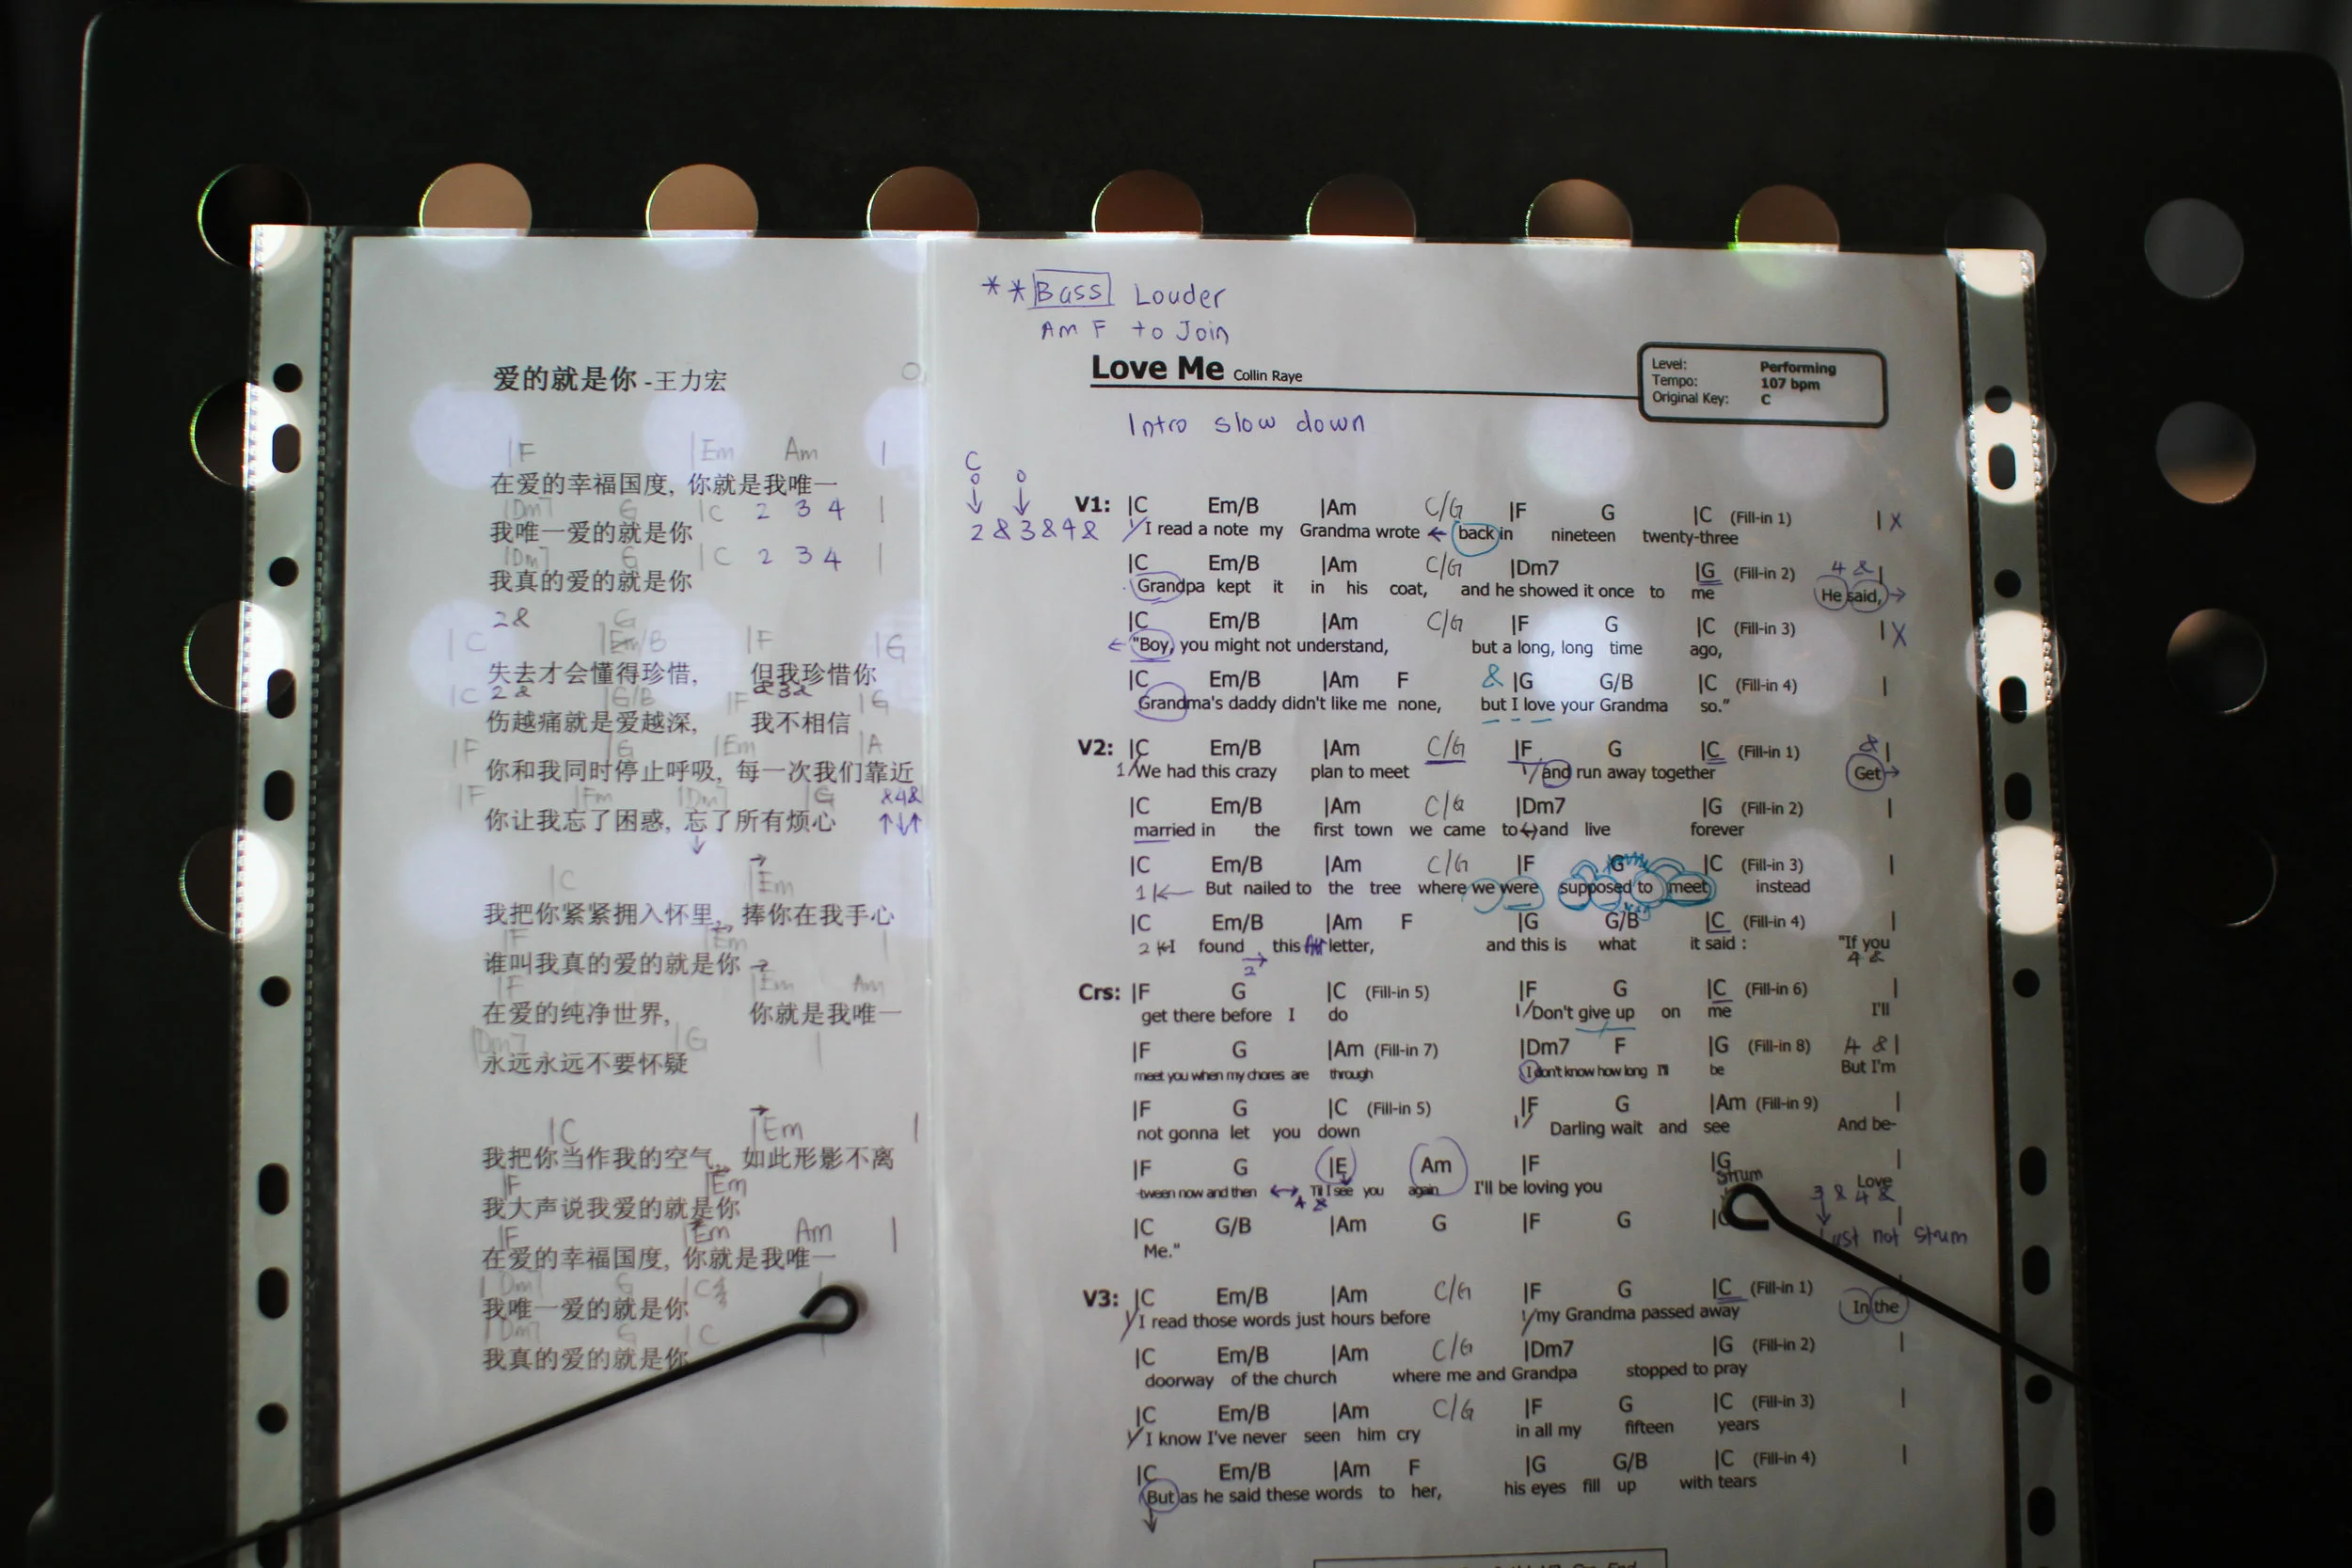 爱的就是你 -王力宏
|F |Em Am |
在爱的幸福国度, 你就是我唯一
|Dm7 G |C 2 3 4 |
我唯一爱的就是你
|Dm7 G |C 2 3 4 |
我真的爱的就是你
2& G
|C |Em/B |F |G
失去才会懂得珍惜, 但我珍惜你
|C 2& |G/B |F &3& |G
伤越痛就是爱越深, 我不相信
|F |G |Em |A
你和我同时停止呼吸, 每一次我们靠近
|F |Fm |Dm7 |G &4&
你让我忘了困惑, 忘了所有烦心 ↑↓↑
↓
|C |Em
我把你紧紧拥入怀里, 捧你在我手心
|F |Em |
谁叫我真的爱的就是你
|F |Em Am
在爱的纯净世界, 你就是我唯一
|Dm7 |G |
永远永远不要怀疑
|C |Em |
我把你当作我的空气, 如此形影不离
|F |Em
我大声说我爱的就是你
|F |Em Am |
在爱的幸福国度, 你就是我唯一
|Dm7 G |C
我唯一爱的就是你
|Dm7 G |C
我真的爱的就是你
**Bass Louder
Am F to Join
Love Me Collin Raye
Level: Performing
Tempo: 107 bpm
Original Key: C
Intro slow down
C
2 & 3 & 4 &
V1: |C Em/B |Am C/G |F G |C (Fill-in 1) | X
I read a note my Grandma wrote ← back in nineteen twenty-three
|C Em/B |Am C/G |Dm7 |G (Fill-in 2) 4 & |
Grandpa kept it in his coat, and he showed it once to me He said, →
|C Em/B |Am C/G |F G |C (Fill-in 3) | X
← "Boy, you might not understand, but a long, long time ago,
|C Em/B |Am F & |G G/B |C (Fill-in 4) |
Grandma's daddy didn't like me none, but I love your Grandma so."
V2: |C Em/B |Am C/G |F G |C (Fill-in 1) & |
1/ We had this crazy plan to meet 1/ and run away together Get →
|C Em/B |Am C/G |Dm7 |G (Fill-in 2) |
married in the first town we came to ↔ and live forever
|C Em/B |Am C/G |F G |C (Fill-in 3) |
1 |← But nailed to the tree where we were supposed to meet instead
|C Em/B |Am F |G G/B |C (Fill-in 4) |
2 |← I found this letter, and this is what it said : "If you
→ 2 4 &
Crs: |F G |C (Fill-in 5) |F G |C (Fill-in 6) |
get there before I do 1/ Don't give up on me I'll
|F G |Am (Fill-in 7) |Dm7 F |G (Fill-in 8) 4 & |
meet you when my chores are through I don't know how long I'll be But I'm
|F G |C (Fill-in 5) |F G |Am (Fill-in 9) |
not gonna let you down 1/ Darling wait and see And be-
|F G |E Am |F |G |
-tween now and then ↔ Till I see you again I'll be loving you Strum Love
4 & 3 & 4 &
|C G/B |Am G |F G |
Me." Just not Strum
V3: |C Em/B |Am C/G |F G |C (Fill-in 1) |
I read those words just hours before 1/ my Grandma passed away In the
|C Em/B |Am C/G |Dm7 |G (Fill-in 2) |
doorway of the church where me and Grandpa stopped to pray
|C Em/B |Am C/G |F G |C (Fill-in 3) |
I know I've never seen him cry in all my fifteen years
|C Em/B |Am F |G G/B |C (Fill-in 4) |
But as he said these words to her, his eyes fill up with tears